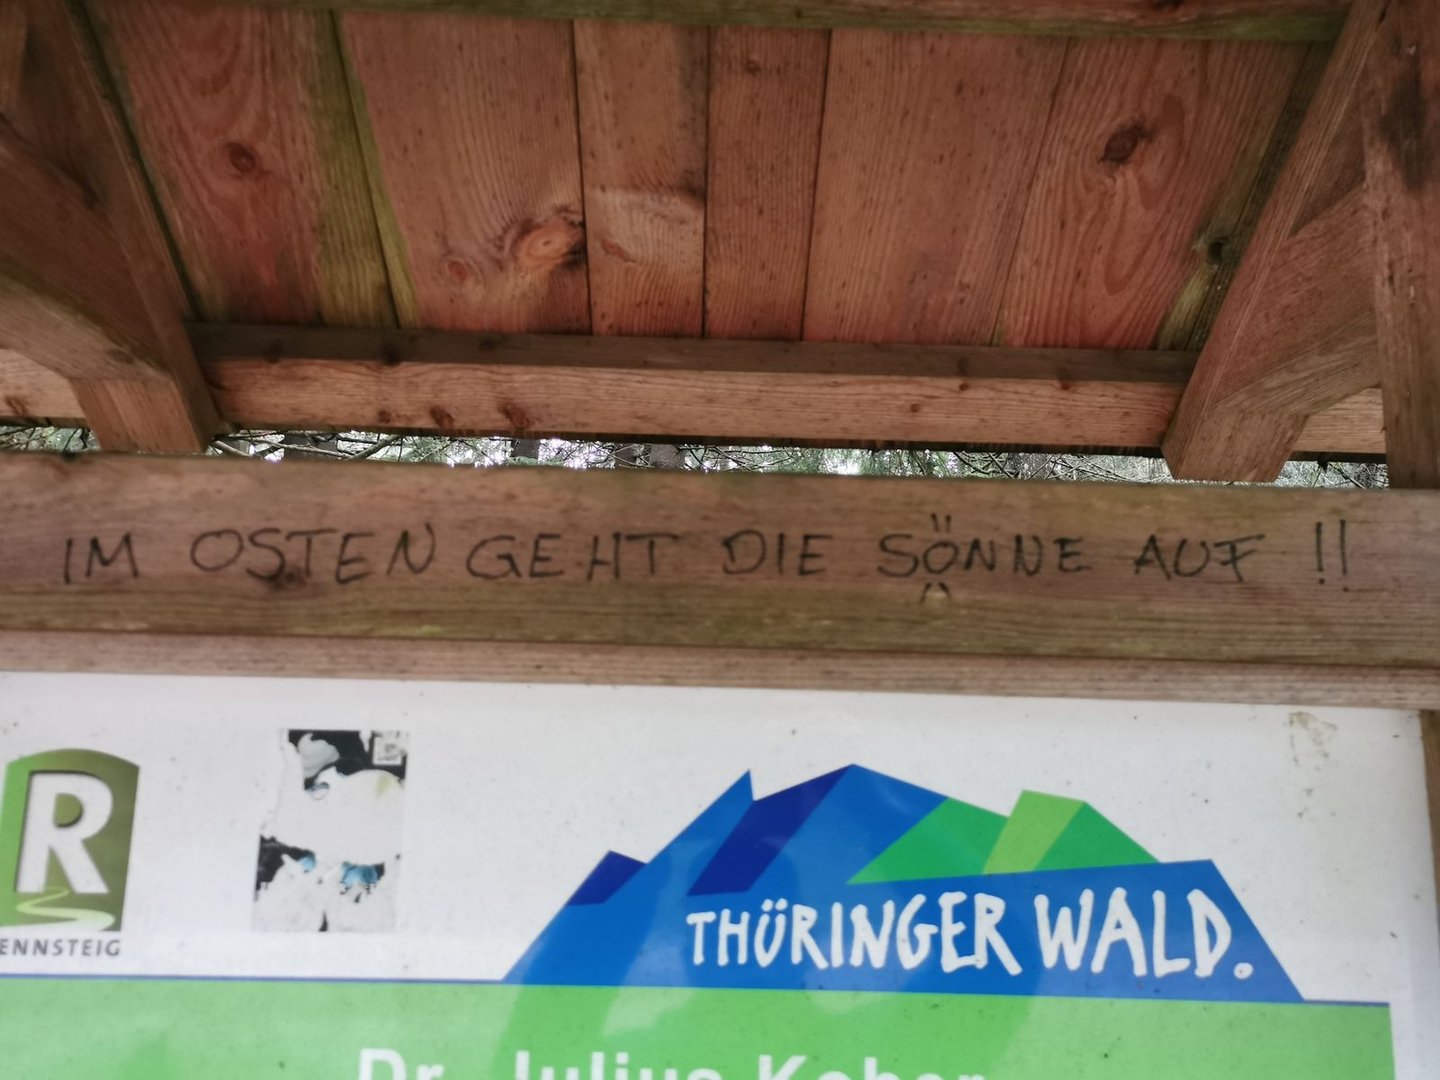 IM OSTEN GEHT DIE SÖNNE AUF !!
R
ENNSTEIG
THÜRINGER WALD.
Dr. Julius Kober